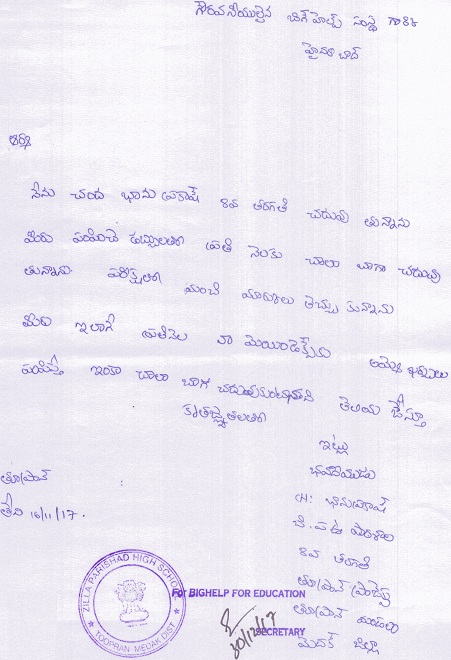 గౌరవనీయులైన బిగ్ హెల్ప్ సంస్థ గారికి
హైదరాబాద్
ఆర్య
నేను చంద భాను ప్రకాష్ 8వ తరగతి చదువు తున్నాను
మీరు పంపించే డబ్బులతో ప్రతి నెలకు చాలు బాగా చదువు
తున్నాను పరీక్షలలో మంచి మార్కులు తెచ్చు కున్నాను
మీరు ఇలాగే ప్రతినెల నా డబ్బులు
పంపిస్తే ఇంకా చాలా బాగ చదువుకుంటానని తెలియ జేస్తూ
కృతజ్ఞతలతో
ఇట్లు
భవదీయుడు
CH. భానుప్రకాష్
జి. ప. ఉ పాఠశాల
8వ తరగతి
తూప్రాన్
తూప్రాన్ మండలం
మెదక్ జిల్లా
తూప్రాన్
తేది 16/11/17.
ZILLA PARISHAD HIGH SCHOOL
TOOPRAN MEDAK DIST
For BIGHELP FOR EDUCATION
30/12/17
SECRETARY